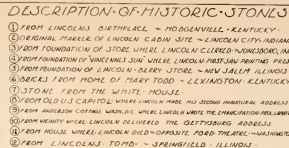 DESCRIPTION·OF·HISTORIC·STONES
① FROM LINCOLN'S BIRTHPLACE ~ HODGENVILLE · KENTUCKY
② ORIGINAL MARKER OF LINCOLN CABIN SITE ~ LINCOLN CITY · INDIANA
③ FROM FOUNDATION OF STORE WHERE LINCOLN CLERKED ~ JONESBORO, IND
④ FROM FOUNDATION OF "VINCENNES SUN" WHERE LINCOLN FIRST SAW PRINTING PRESS
⑤ FROM FOUNDATION OF LINCOLN-BERRY STORE ~ NEW SALEM ILLINOIS
⑥ BRICKS FROM HOME OF MARY TODD ~ LEXINGTON · KENTUCKY
⑦ STONE FROM THE WHITE · HOUSE ·
⑧ FROM OLD U S CAPITOL · WHERE LINCOLN MADE HIS SECOND INAUGURAL ADDRESS
⑨ FROM ANDERSON COTTAGE WASH, D.C. WHERE LINCOLN WROTE THE EMANCIPATION
⑩ FROM VICINITY WHERE LINCOLN DELIVERED THE GETTYSBURG ADDRESS
⑪ FROM HOUSE WHERE LINCOLN DIED ~ OPPOSITE FORD THEATRE ~
⑫ FROM LINCOLNS TOMB ~ SPRINGFIELD · ILLINOIS ·